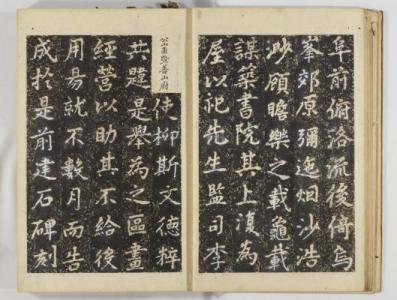 阜前俯洛流後倚烏
峯郊原彌迤烟沙浩
渺顧瞻樂之載龜載
謀築書院其上沒為
屋以祀先生監司李
公
使柳斯文德粹
共贊是舉為之區畫
經營以助其不給後
用易就不數月而告
成於是前建石碑刻